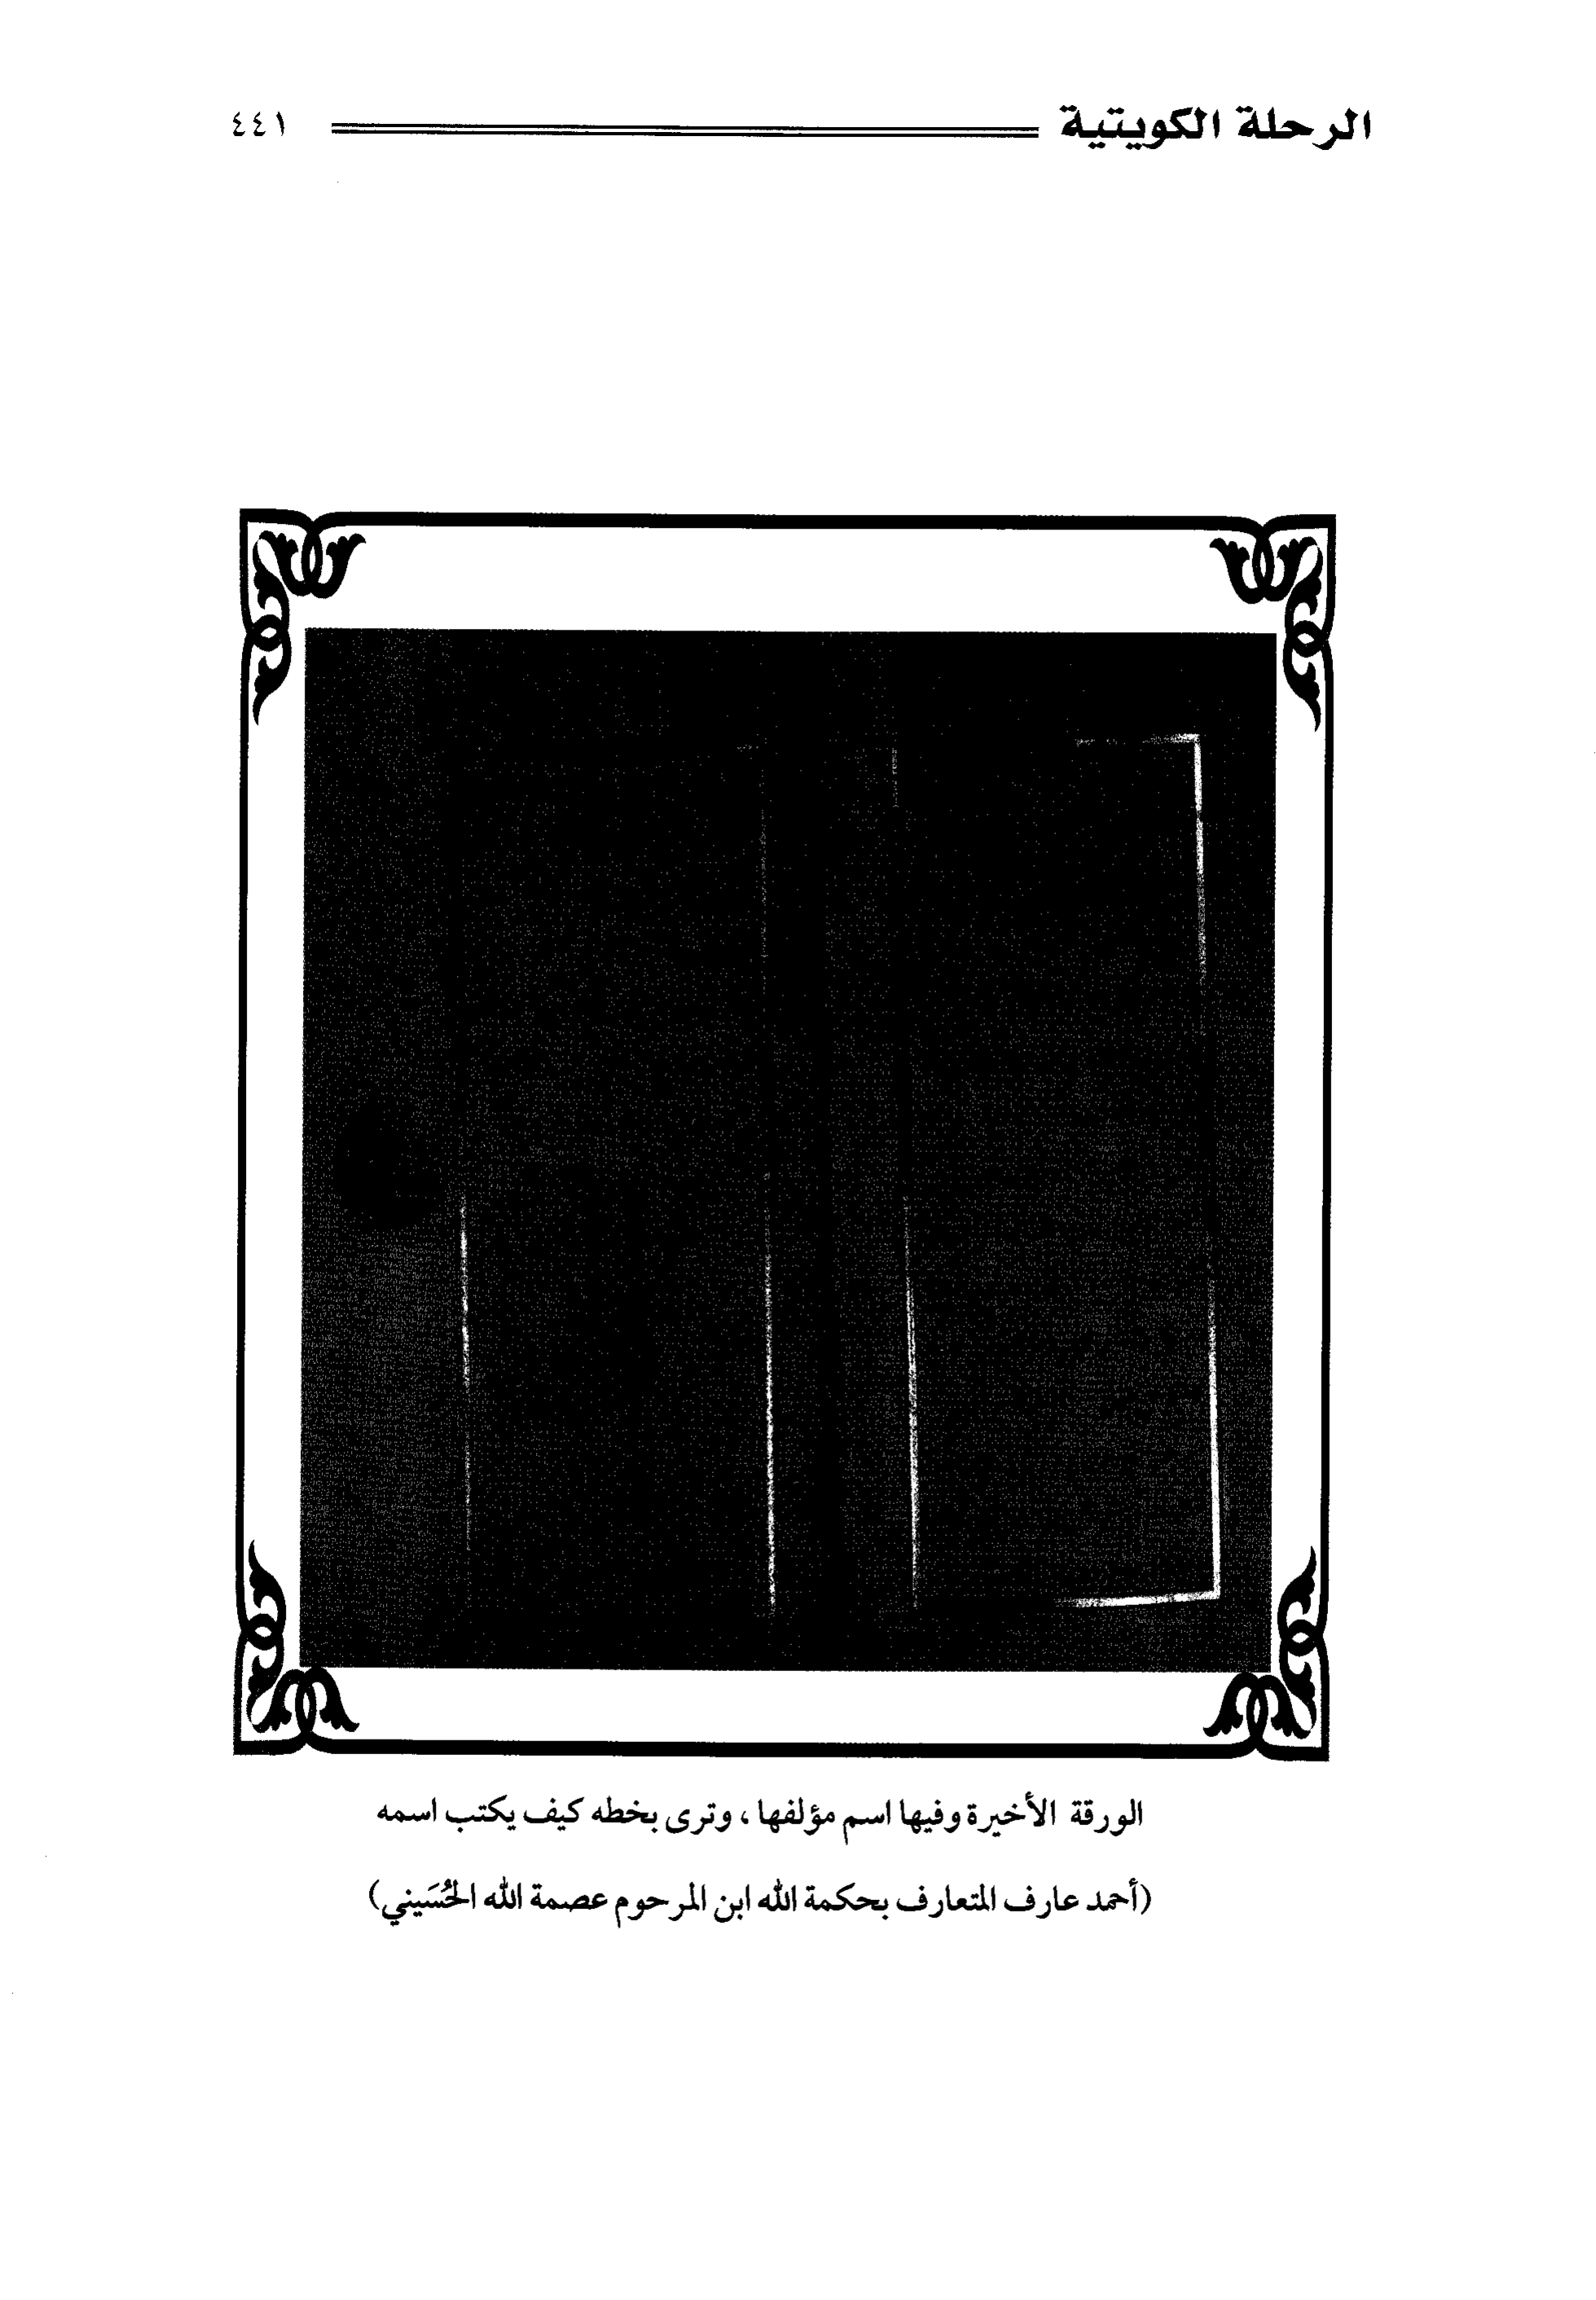 الرحلة الكويتية ٤٤١
الورقة الأخيرة وفيها اسم مؤلفها، وترى بخطه كيف يكتب اسمه
(أحمد عارف المتعارف بحكمة الله ابن المرحوم عصمة الله الحُسَيني)